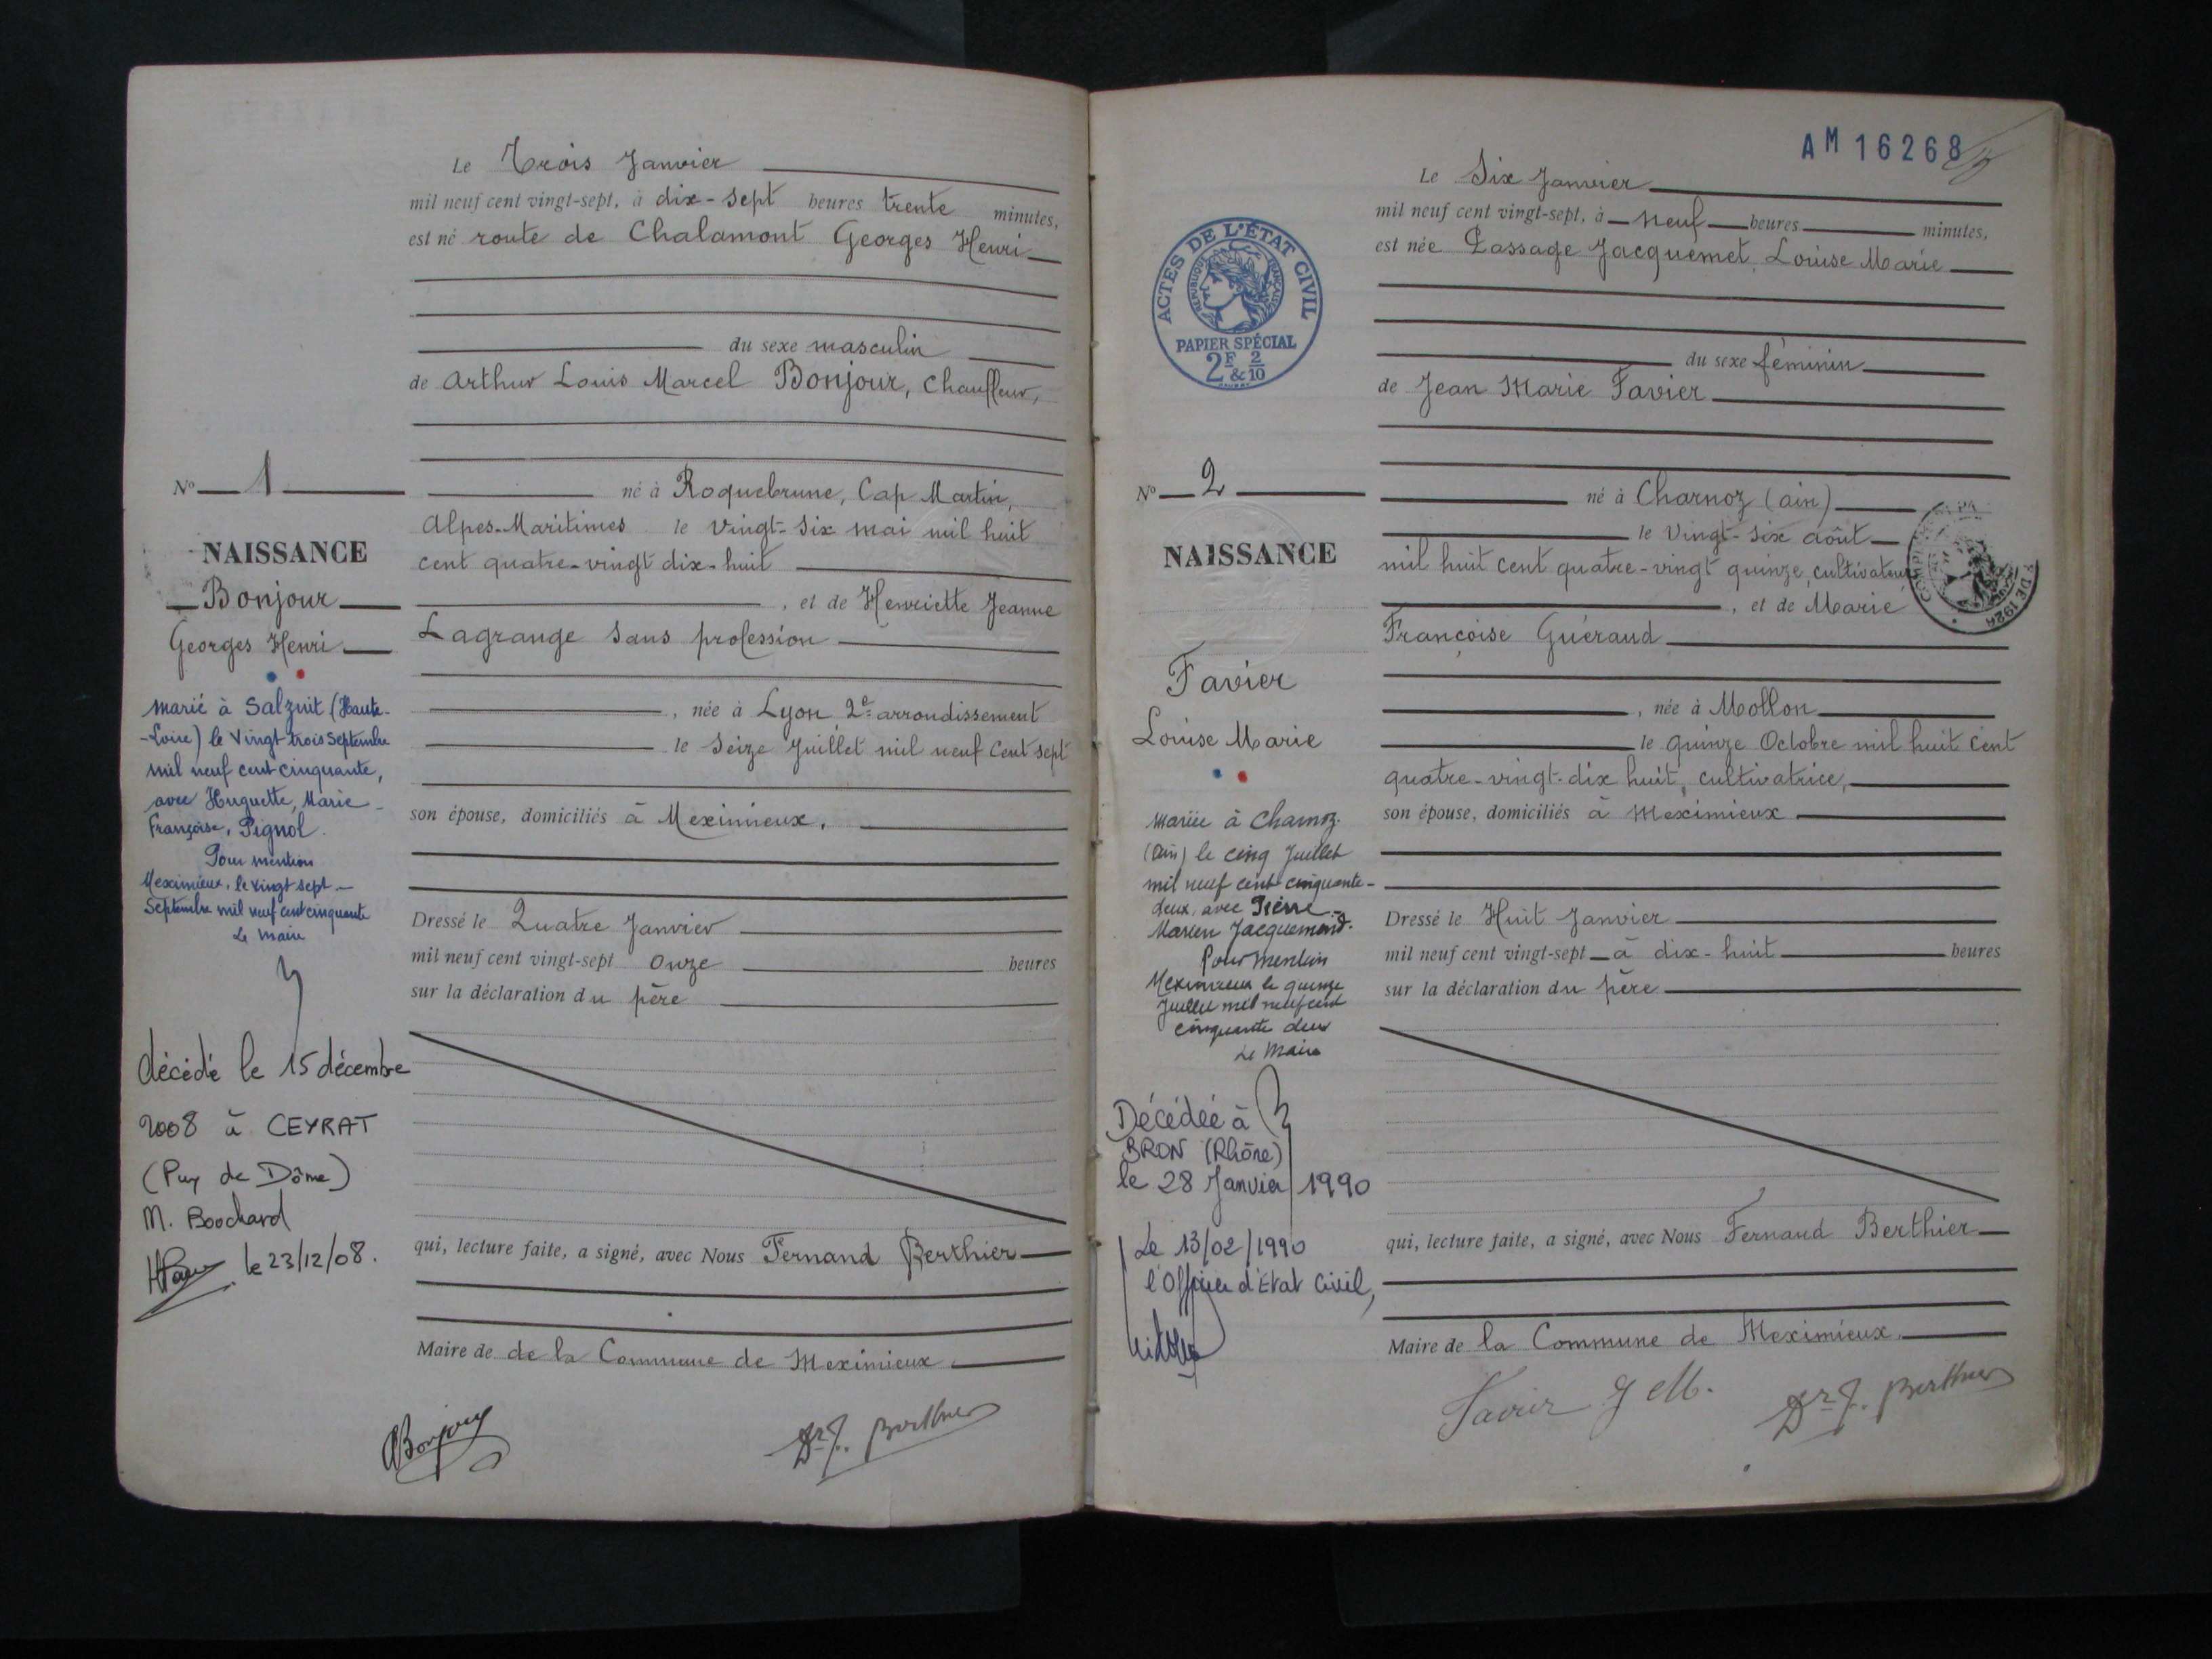 Le Trois Janvier
mil neuf cent vingt-sept, à dix-sept heures trente minutes,
est né route de Chalamont Georges Henri
du sexe masculin
de Arthur Louis Marcel Bonjour, Chauffeur,
N° 1
né à Roquebrune, Cap Martin,
Alpes-Maritimes le Vingt-six mai mil huit
NAISSANCE
cent quatre-vingt dix-huit
Bonjour
, et de Henriette Jeanne
Georges Henri
Lagrange sans profession
, née à Lyon 2e arrondissement
le Seize Juillet mil neuf Cent sept
son épouse, domiciliés à Meximieux.
Dressé le Quatre Janvier
mil neuf cent vingt-sept Onze heures
sur la déclaration du père
qui, lecture faite, a signé, avec Nous Fernand Berthier
Maire de de la Commune de Meximieux.
ABonjour
Dr F. Berthier
marié à Salzuit (Haute-
-Loire) le Vingt trois Septembre
mil neuf cent cinquante,
avec Huguette, Marie-
Françoise, Pignol.
Pour mention
Meximieux, le vingt sept
Septembre mil neuf cent cinquante
Le Maire
décédé le 15 décembre
2008 à CEYRAT
(Puy de Dôme)
M. Boochard
le 23/12/08.
AM 16268
Le Six Janvier
mil neuf cent vingt-sept, à neuf heures minutes,
est née Passage Jacquemet, Louise Marie
ACTES DE L'ÉTAT CIVIL
RÉPUBLIQUE FRANÇAISE
PAPIER SPÉCIAL
2F & 2/10
du sexe féminin
de Jean Marie Favier
N° 2
né à Charnoz (ain)
le Vingt-six août
NAISSANCE
mil huit cent quatre-vingt quinze, cultivateur
, et de Marie
Françoise Guéraud
Favier
, née à Mollon
Louise Marie
le quinze Octobre mil huit cent
quatre-vingt-dix huit, cultivatrice,
son épouse, domiciliés à Meximieux
Dressé le Huit Janvier
mil neuf cent vingt-sept à dix-huit heures
sur la déclaration du père
qui, lecture faite, a signé, avec Nous Fernand Berthier
Maire de la Commune de Meximieux.
Favier J M.
Dr F. Berthier
mariée à Charnoz
(Ain) le cinq Juillet
mil neuf cent cinquante-
deux, avec Pierre-
Marien Jacquemond.
Pour mention
Meximieux le quinze
Juillet mil neuf cent
cinquante deux
Le Maire
Décédée à
BRON (Rhône)
le 28 Janvier 1990
Le 13/02/1990
l'Officier d'Etat Civil,